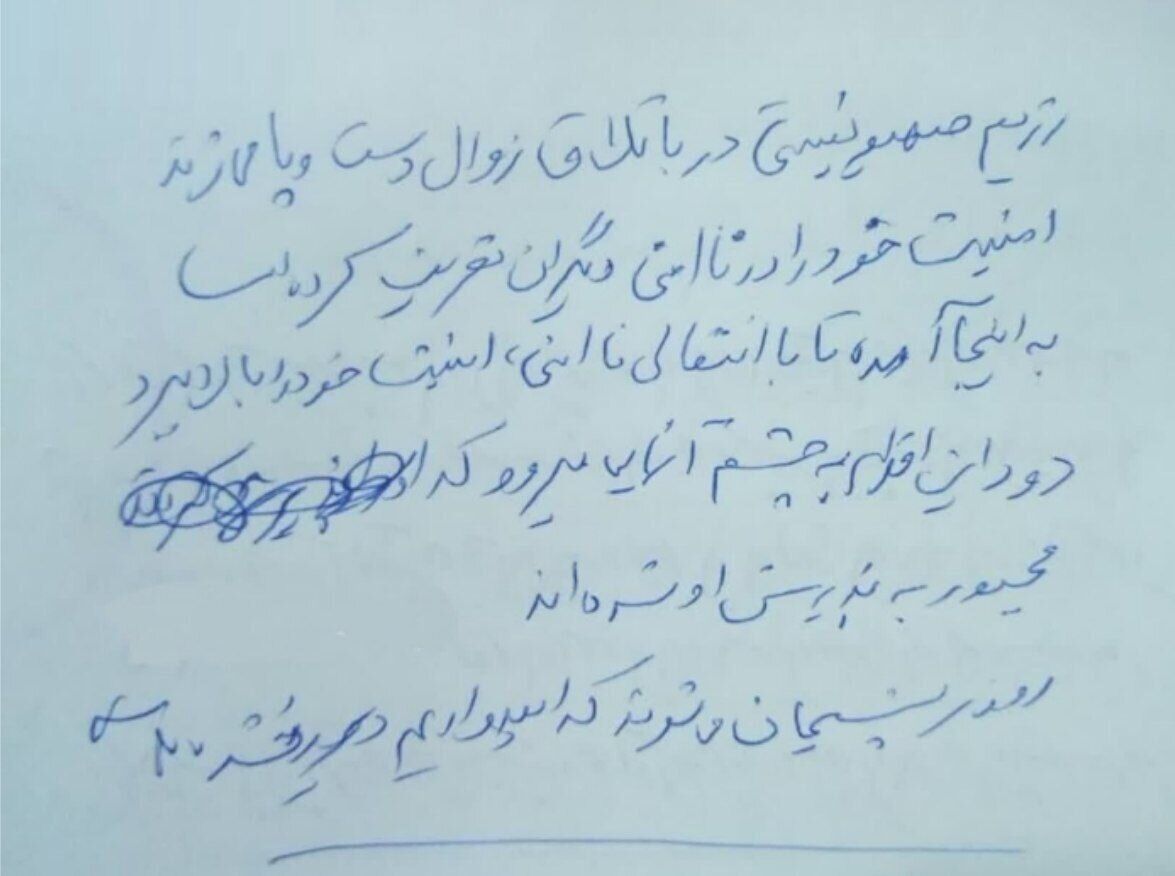 رژیم صهیونیستی در باتلاق زوال دست و پا میزند
امنیت خود را در ناامنی دیگران تعریف کرده است
به اینجا آمده تا با انتقال ناامنی، امنیت خود را بالا ببرد
دود این اقدام به چشم آنهایی میرود که
مجبور به پذیرش او شده‌اند
روزی پشیمان میشوند که امیدواریم دیر نشده باشد